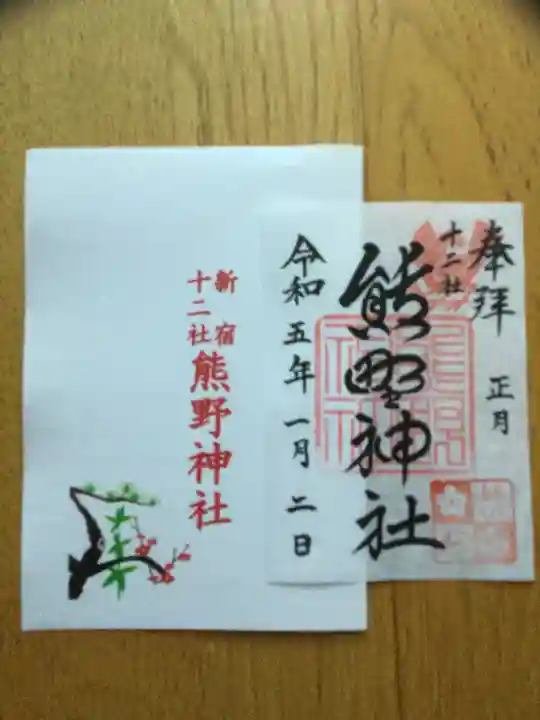 奉拝
正月
十二社
熊野神社
令和五年一月二日
新宿
十二社
熊野神社